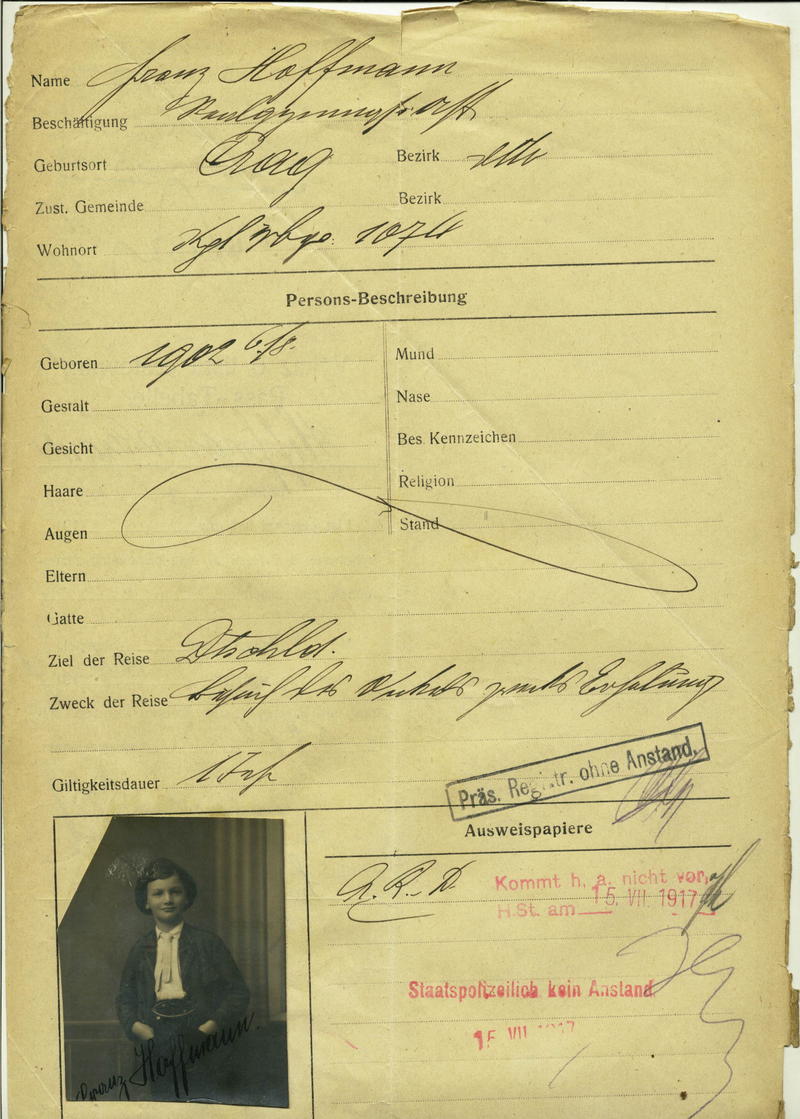 Name Franz Hoffmann
Beschäftigung
Geburtsort Prag Bezirk dtto
Zust. Gemeinde Bezirk
Wohnort Kgl Wbge. 1074
Persons-Beschreibung
Geboren 1902 6/8. Mund
Gestalt Nase
Gesicht Bes. Kennzeichen
Haare Religion
Augen Stand
Eltern
Gatte
Ziel der Reise Dtschld.
Zweck der Reise Besuch des Onkels zwecks Erholung
Giltigkeitsdauer 1 Jahr
Präs. Registr. ohne Anstand.
Ausweispapiere
Kommt h. a. nicht vor,
H.St. am 15. VII. 1917
Staatspolizeilich kein Anstand
15 VII 1917
Franz Hoffmann.